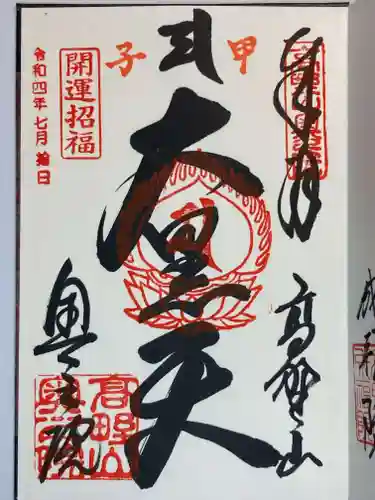 奉拝
高野山
甲子
大黒天
開運招福
奥之院
令和四年七月縁日
高野山
奥之院